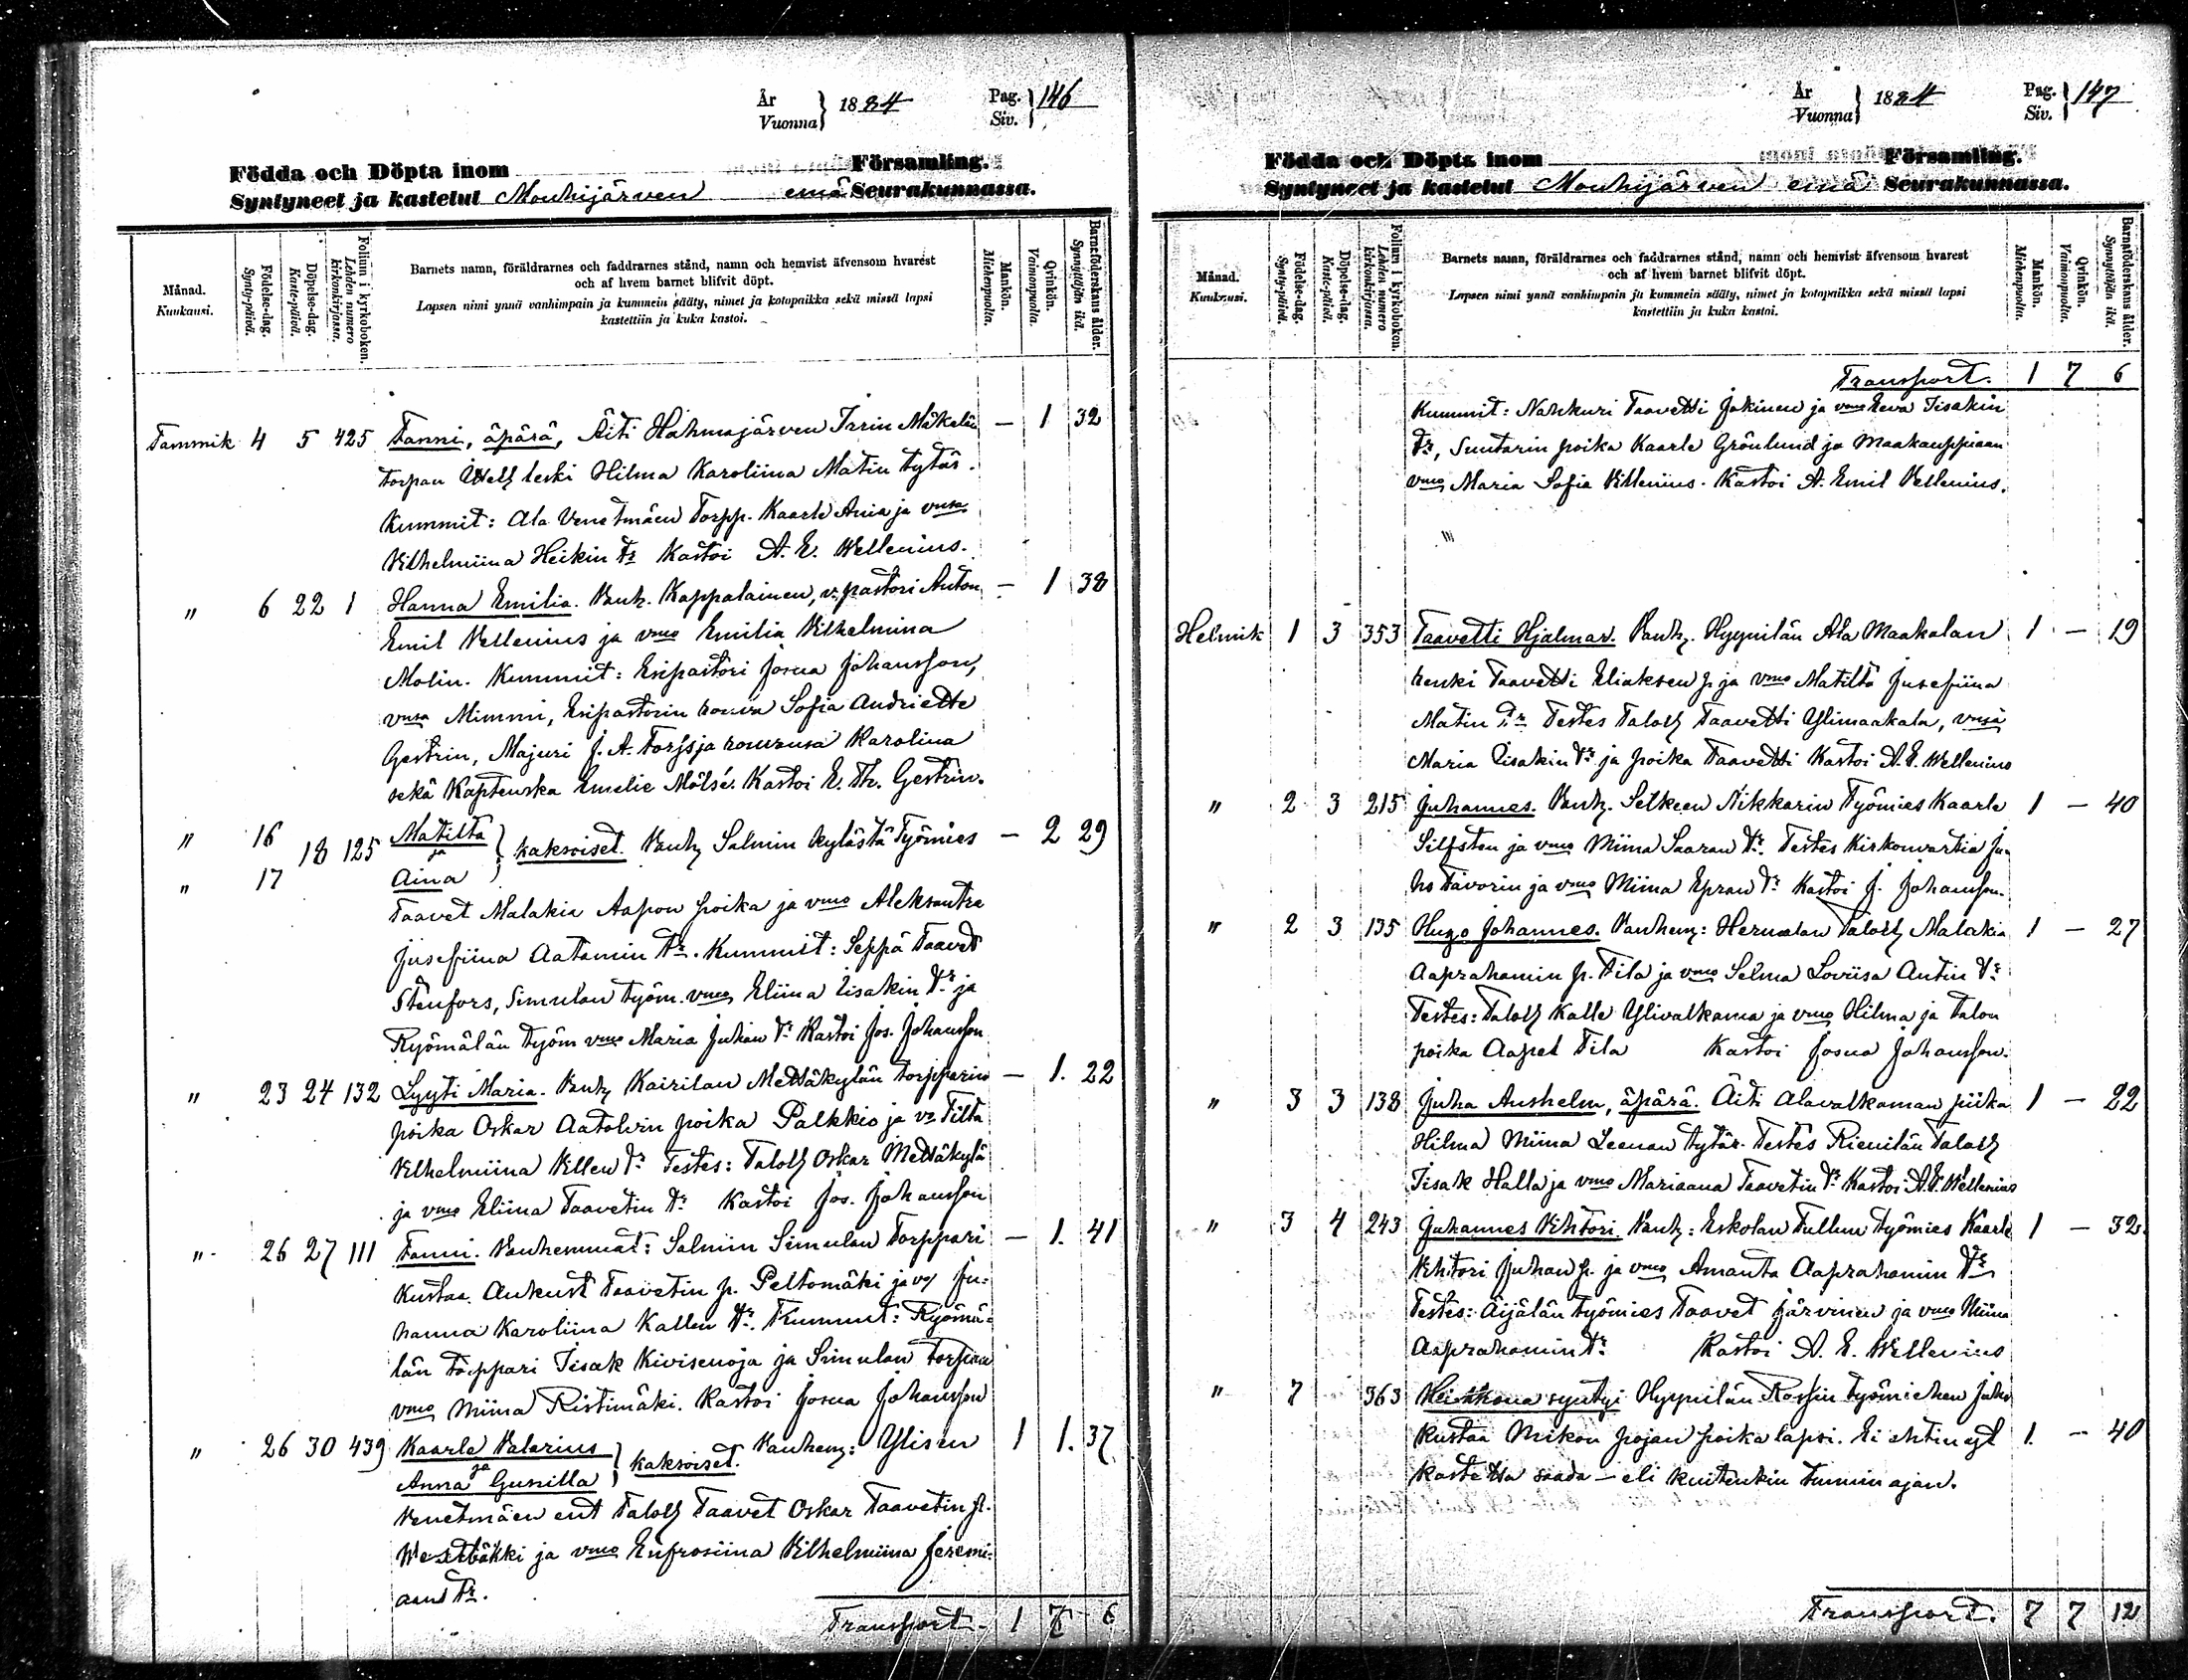 År
Vuonna } 1884
Pag.
Siv. } 146
Födda och Döpta inom Församling.
Syntyneet ja kastetut Mouhijärven emä Seurakunnassa.
Månad.
Kuukausi.
Födelse-dag.
Synty-päivä.
Döpelse-dag.
Kaste-päivä.
Folium i kyrkoboken.
Lehden numero kirkonkirjassa.
Barnets namn, föräldrarnes och faddrarnes stånd, namn och hemvist äfvensom hvarest
och af hvem barnet blifvit döpt.
Lapsen nimi ynnä vanhimpain ja kummein sääty, nimet ja kotopaikka sekä missä lapsi
kastettiin ja kuka kastoi.
Mankön.
Miehenpuolta.
Qvinkön.
Vaimonpuolta.
Barnaföderskans ålder.
Synnyttäjän ikä.
Tammik 4 5 425 Fanni, äpärä, Äiti Hahmajärven Iarin Mäkelän — 1 32
torpan leski Hilma Karoliina Matin tytär.
Kummit: Ala Venetmäen Torpp. Kaarle ja vmsa
Vilhelmiina Heikin tr Kastoi A. E. Wellenius.
" 6 22 1 Hanna Emilia. Vanh. Kappalainen, v. pastori Anton — 1 38
Emil Vellenius ja vmo Emilia Vilhelmina
Molin. Kummit: Esipastori Josua Johansson,
vmsa Mimmi, Esipastorin rouva Sofia Andriette
Gestrin, Majuri J. A. ja rouvansa Karolina
sekä Kaptenska Emelie Mölsé. Kastoi E. Th. Gestrin.
" 16 18 125 Matilta
ja } kaksoiset. Vanh. Salmin kylästä Työmies — 2 29
" 17 Aina
Taavet Malakia Aapon poika ja vmo Aleksantra
Jusefiina Aatamin tr. Kummit: Seppä Taavet
Stenfors, Simulan työm. vmo Eliina Iisakin tr ja
Ryömälän työm vmo Maria Juhan tr Kastoi Jos. Johansson
" 23 24 132 Lyyti Maria. Vanh. Kairilan Mettäkylän torpparin — 1. 22
poika Oskar Aatolvin poika Palkkio ja vo Tilta
Vilhelmiina Villen tr Testes: Taloll Oskar Mettäkylä
ja vmo Eliina Taavetin tr Kastoi Jos. Johansson
" 26 27 111 Fanni. Vanhemmat: Salmin Simulan Torppari — 1. 41
Kustaa Aukust Taavetin p. Peltomäki ja vo Ju-
hanna Karoliina Kallen tr. Kummit: Ryömä-
län torppari Iisak Kivisenoja ja Simulan torpan
vmo Miina Ristimäki. Kastoi Josua Johansson
" 26 30 439 Kaarle Valerius
ja } kaksoiset. Vanhem: Ylisen 1 1. 37
Anna Gunilla
Venetmäen ent Taloll Taavet Oskar Taavetin p.
Westbäkki ja vmo Eufrosiina Vilhelmiina Jeremi-
aan tr.
Transport. 1 7 6
År
Vuonna } 1884
Pag.
Siv. } 147
Födda och Döpta inom Församling.
Syntyneet ja kastetut Mouhijärven emä Seurakunnassa.
Månad.
Kuukausi.
Födelse-dag.
Synty-päivä.
Döpelse-dag.
Kaste-päivä.
Folium i kyrkoboken.
Lehden numero kirkonkirjassa.
Barnets namn, föräldrarnes och faddrarnes stånd, namn och hemvist äfvensom hvarest
och af hvem barnet blifvit döpt.
Lapsen nimi ynnä vanhimpain ja kummein sääty, nimet ja kotopaikka sekä missä lapsi
kastettiin ja kuka kastoi.
Mankön.
Miehenpuolta.
Qvinkön.
Vaimonpuolta.
Barnaföderskans ålder.
Synnyttäjän ikä.
Transport. 1 7 6
Kummit: Nahkuri Taavetti Jokinen ja vmo Eeva Iisakin
tr, Suutarin poika Kaarle Grönlund ja Maakauppiaan
vmo Maria Sofia Villenius. Kastoi A. Emil Vellenius.
Helmik 1 3 353 Taavetti Hjalmar. Vanh. Hyynilän Ala Maakalan 1 — 19
henki Taavetti Eliaksen p. ja vmo Matilta Jusefiina
Matin tr Testes Taloll Taavetti Ylimaakala, vmsa
Maria Iisakin tr ja poika Taavetti Kastoi A. E. Wellenius
" 2 3 215 Juhannes. Vanh. Selkeen Nikkarin Työmies Kaarle 1 — 40
Silfsten ja vmo Miina Saaran tr. Testes Kirkonvartia Ju-
ho Tavorin ja vmo Miina Epran tr Kastoi J. Johansson.
" 2 3 135 Hugo Johannes. Vanhem: Hermalan Taloll Malakia 1 — 27
Aaprahamin p. Tila ja vmo Selma Loviisa Antin tr
Testes: Taloll Kalle Ylivalkama ja vmo Hilma ja talon
poika Aapel Tila Kastoi Josua Johansson.
" 3 3 138 Juha Anshelm, äpärä. Äiti Alavalkaman piika 1 — 22
Hilma Miina Leenan tytär. Testes Rienilän Taloll
Iisak Halla ja vmo Mariaana Taavetin tr Kastoi A. E. Wellenius
" 3 4 243 Juhannes Vihtori. Vanh: Eskolan Tullun työmies Kaarle 1 — 32.
Vihtori Juhan p. ja vmo Amanta Aaprahamin tr
Testes: Äijälän työmies Taavet Järvinen ja vmo Miina
Aaprahamin tr. Kastoi A. E. Wellenius
" 7 363 Heikkona syntyi Hyynilän Rossin työmiehen Juho
Kustaa Mikon pojan poikalapsi. Ei ehtinyt 1. — 40
kastetta saada — eli kuitenkin tunnin ajan.
Transport. 7 7 12